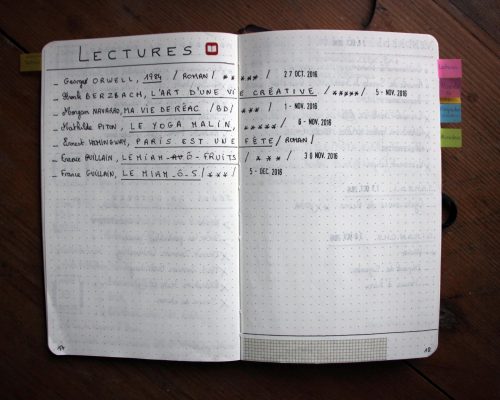 LECTURES
_ Georges ORWELL, 1984 / ROMAN / ***** / 27 OCT. 2016
_ Frank BERZBACH, L'ART D'UNE VIE CRÉATIVE / ***** / 5 - NOV. 2016
_ Morgan NAVARRO, MA VIE DE RÉAC / BD / *** / 1 - NOV. 2016
_ Mathilde PITON, LE YOGA MALIN, ***** / 6 - NOV. 2016
_ Ernest HEMINGWAY, PARIS EST UNE FÊTE / ROMAN /
_ France GUILLAIN, LE MIAM-Ô-FRUITS / *** / 30 NOV. 2016
_ France GUILLAIN, LE MIAM-Ô-5 / *** / 5 - DEC. 2016